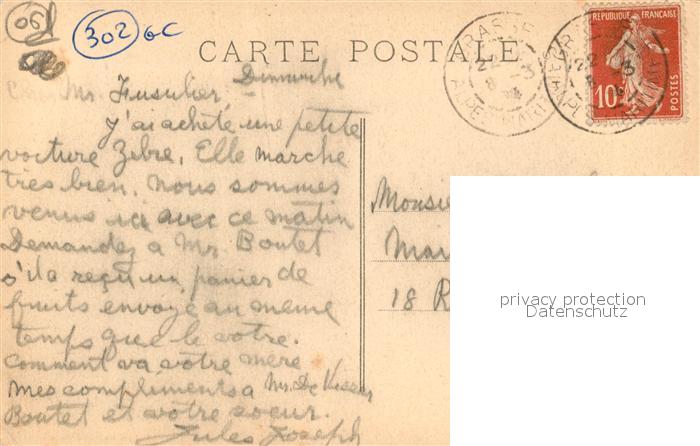 06
302 GC
CARTE POSTALE
GRASSE
ALPES MARITIMES
22 - 3
RÉPUBLIQUE FRANÇAISE
10
POSTES
Dimanche
Mr. Fusulier,
J'ai acheté une petite
voiture Zebre, Elle marche
tres bien, nous sommes
venus ici avec ce matin
Demandez a Mr. Boutet
s'il a reçu un panier de
fruits envoyé au meme
temps que le votre.
comment va votre mere
mes compliments a Mr. De
Boutet et votre soeur.
Jules Joseph
Monsie
Mai
18 R
privacy protection
Datenschutz